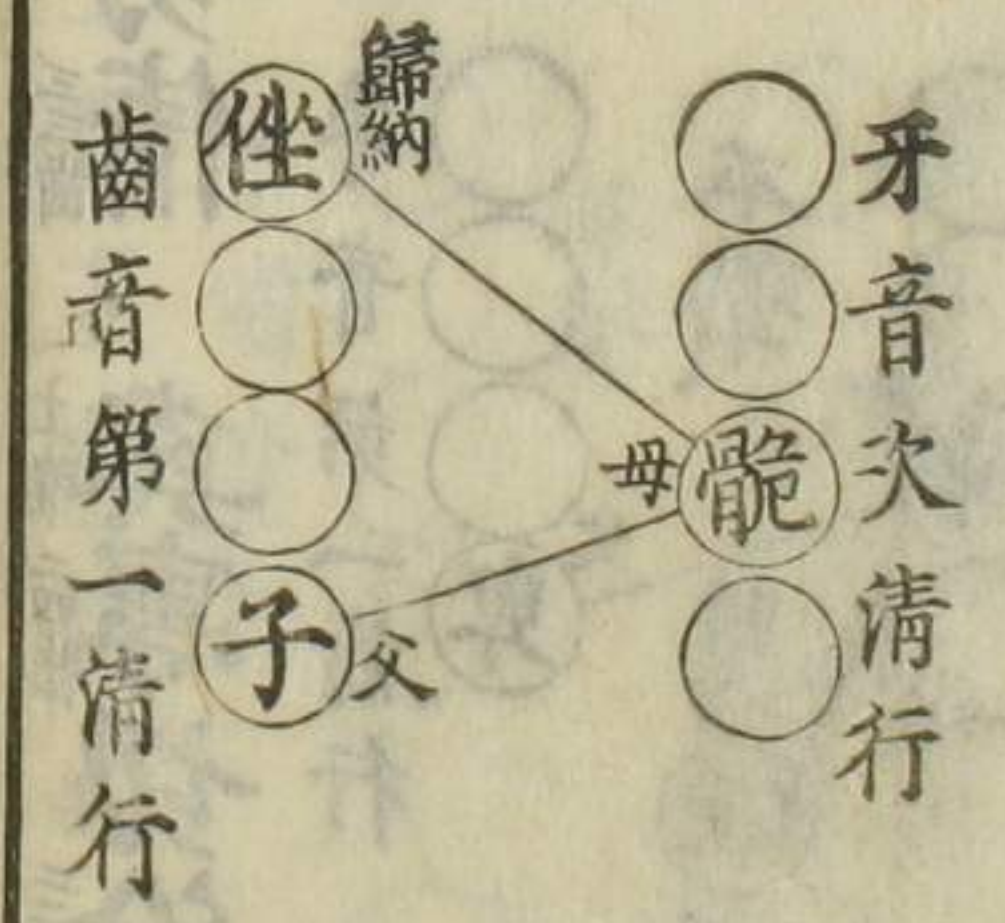 牙音次清行
母
歸納
父
侳
子
齒音第一清行